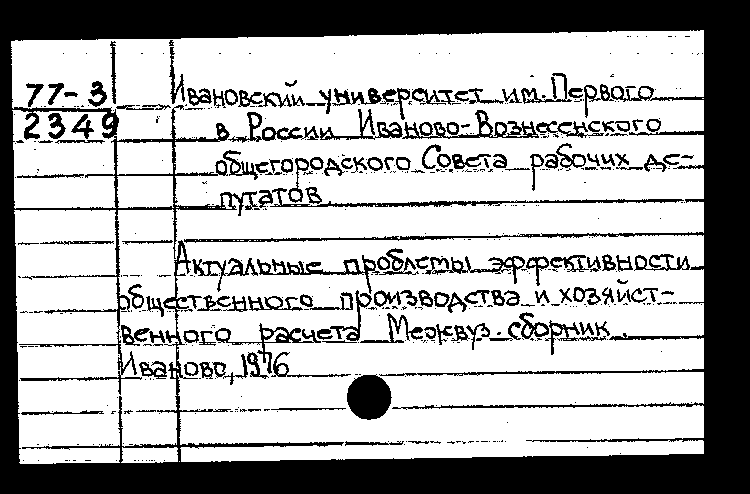 77-3
2349
Ивановский университет им. Первого
в России Иваново-Вознесенского
общегородского Совета рабочих де-
путатов.
Актуальные проблемы эффективности
общественного производства и хозяйст-
венного расчета Межвуз. сборник.
Иваново, 1976